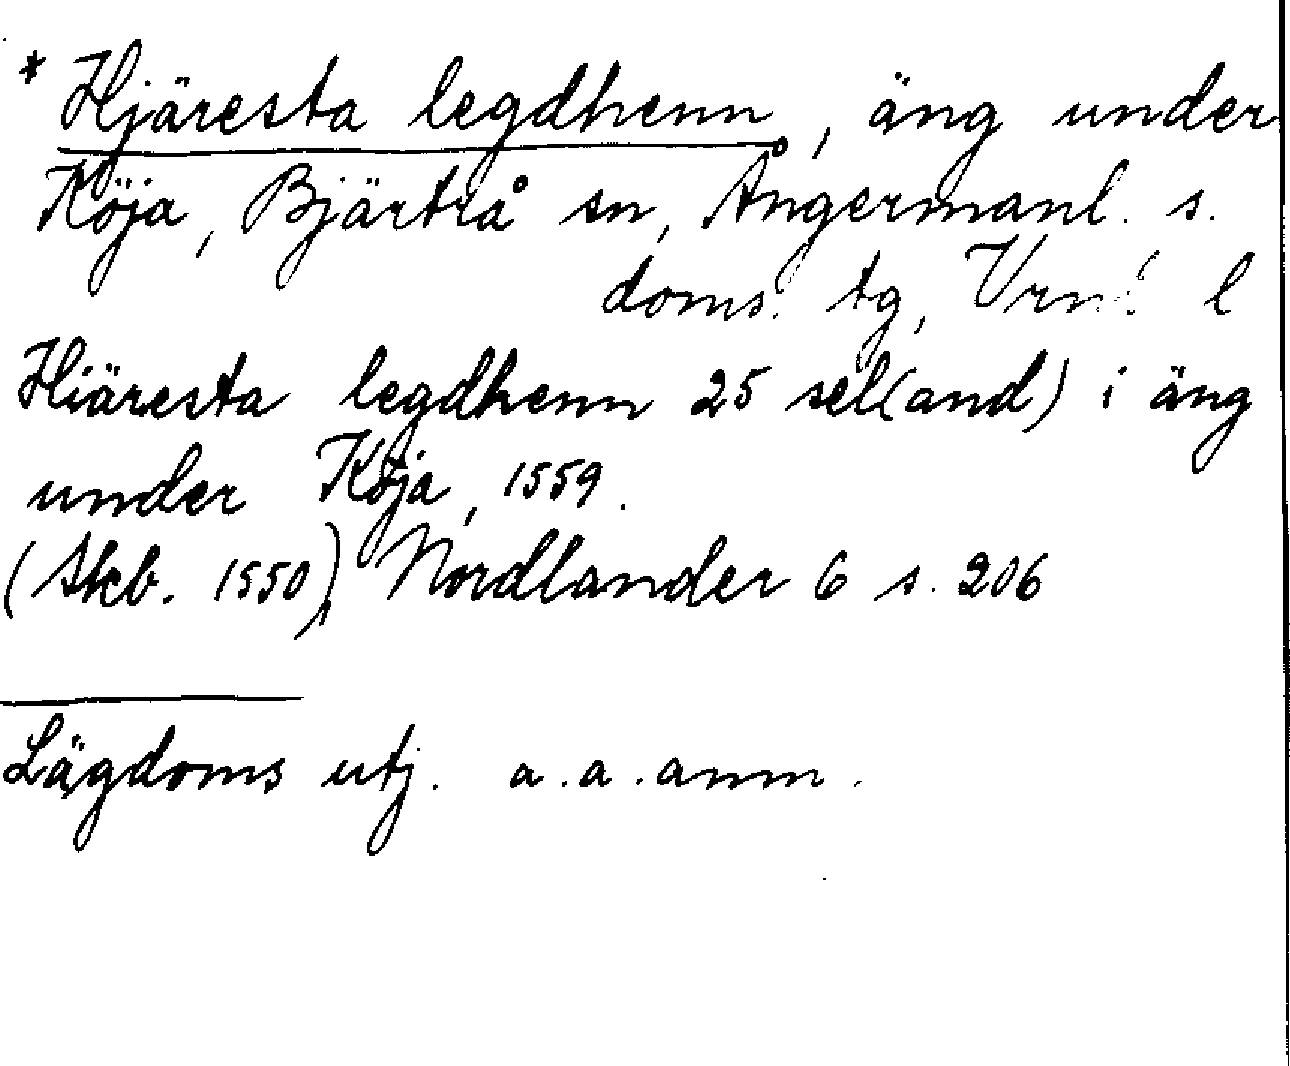 * Hjäresta legdhenn, äng under
Köja, Bjärtrå sn, Ångermanl. s.
doms. tg, l
Hiäresta legdhenn 25 sel(and) i äng
under Köja, 1559.
(Skb. 1550), Nordlander 6 s. 206
Lägdoms utj. a.a. anm.